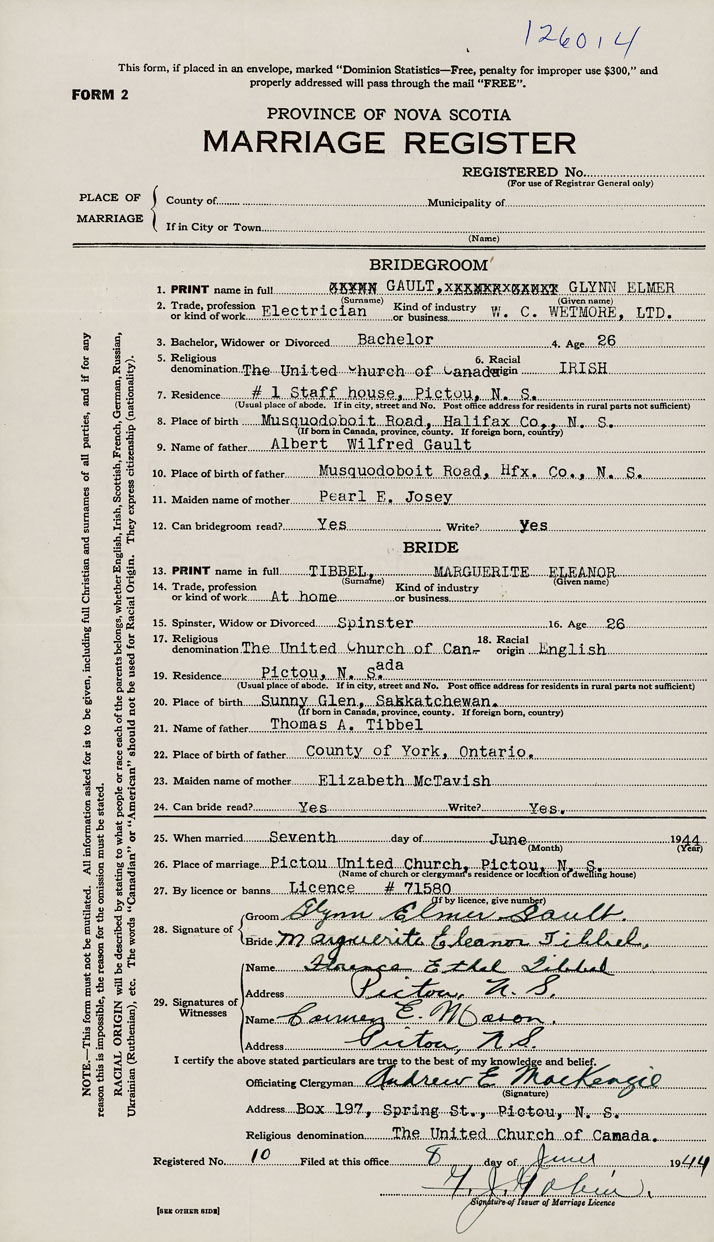 126014
This form, if placed in an envelope, marked "Dominion Statistics—Free, penalty for improper use $300," and
properly addressed will pass through the mail "FREE".
FORM 2
PROVINCE OF NOVA SCOTIA
MARRIAGE REGISTER
REGISTERED No.
(For use of Registrar General only)
PLACE OF MARRIAGE
County of Municipality of
If in City or Town
(Name)
BRIDEGROOM
1. PRINT name in full GAULT, GLYNN ELMER
(Surname) (Given name)
2. Trade, profession or kind of work Electrician Kind of industry or business W. C. WETMORE, LTD.
3. Bachelor, Widower or Divorced Bachelor 4. Age 26
5. Religious denomination The United Church of Canada 6. Racial origin IRISH
7. Residence # 1 Staff house, Pictou, N. S.
(Usual place of abode. If in city, street and No. Post office address for residents in rural parts not sufficient)
8. Place of birth Musquodoboit Road, Halifax Co., N. S.
(If born in Canada, province, county. If foreign born, country)
9. Name of father Albert Wilfred Gault
10. Place of birth of father Musquodoboit Road, Hfx. Co., N. S.
11. Maiden name of mother Pearl E. Josey
12. Can bridegroom read? Yes Write? Yes
BRIDE
13. PRINT name in full TIBBEL, MARGUERITE ELEANOR
(Surname) (Given name)
14. Trade, profession or kind of work At home Kind of industry or business
15. Spinster, Widow or Divorced Spinster 16. Age 26
17. Religious denomination The United Church of Can- ada 18. Racial origin English
19. Residence Pictou, N. S.
(Usual place of abode. If in city, street and No. Post office address for residents in rural parts not sufficient)
20. Place of birth Sunny Glen, Saskatchewan.
(If born in Canada, province, county. If foreign born, country)
21. Name of father Thomas A. Tibbel
22. Place of birth of father County of York, Ontario.
23. Maiden name of mother Elizabeth McTavish
24. Can bride read? Yes Write? Yes.
25. When married Seventh day of June 1944
(Month) (Year)
26. Place of marriage Pictou United Church, Pictou, N. S.
(Name of church or clergyman's residence or location of dwelling house)
27. By licence or banns Licence # 71580
(If by licence, give number)
28. Signature of
Groom Glynn Elmer Gault.
Bride Marguerite Eleanor Tibbel,
29. Signatures of Witnesses
Name Florence Ethel Tibbel
Address Pictou, N. S.
Name E. Mason.
Address Pictou, N.S.
I certify the above stated particulars are true to the best of my knowledge and belief.
Officiating Clergyman Andrew E MacKenzie
(Signature)
Address Box 197, Spring St., Pictou, N. S.
Religious denomination The United Church of Camada.
Registered No. 10 Filed at this office 8 day of June 1944
Signature of Issuer of Marriage Licence
[SEE OTHER SIDE]
NOTE.—This form must not be mutilated. All information asked for is to be given, including full Christian and surnames of all parties, and if for any
reason this is impossible, the reason for the omission must be stated.
RACIAL ORIGIN will be described by stating to what people or race each of the parents belongs, whether English, Irish, Scottish, French, German, Russian,
Ukrainian (Ruthenian), etc. The words "Canadian" or "American" should not be used for Racial Origin. They express citizenship (nationality).